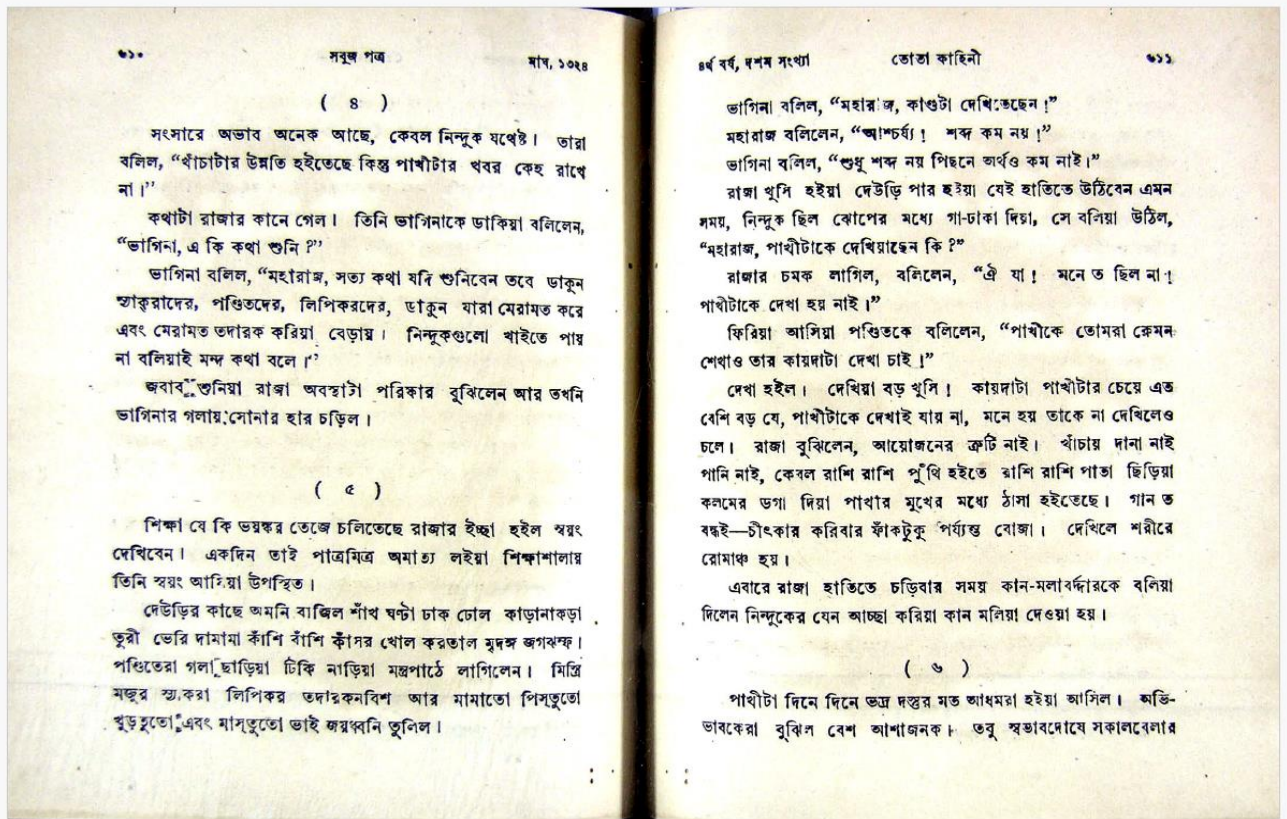 ৬১০ সবুজ পত্র মাঘ, ১৩২৪
( ৪ )
সংসারে অভাব অনেক আছে, কেবল নিন্দুক যথেষ্ট। তারা
বলিল, “খাঁচাটার উন্নতি হইতেছে কিন্তু পাখীটার খবর কেহ রাখে
না।”
কথাটা রাজার কানে গেল। তিনি ভাগিনাকে ডাকিয়া বলিলেন,
“ভাগিনা, এ কি কথা শুনি ?”
ভাগিনা বলিল, “মহারাজ, সত্য কথা যদি শুনিবেন তবে ডাকুন
স্যাকরাদের, পণ্ডিতদের, লিপিকরদের, ডাকুন যারা মেরামত করে
এবং মেরামত তদারক করিয়া বেড়ায়। নিন্দুকগুলো খাইতে পায়
না বলিয়াই মন্দ কথা বলে।”
জবাব শুনিয়া রাজা অবস্থাটা পরিষ্কার বুঝিলেন আর তখনি
ভাগিনার গলায় সোনার হার চড়িল।
( ৫ )
শিক্ষা যে কি ভয়ঙ্কর তেজে চলিতেছে রাজার ইচ্ছা হইল স্বয়ং
দেখিবেন। একদিন তাই পাত্রমিত্র অমাত্য লইয়া শিক্ষাশালায়
তিনি স্বয়ং আসিয়া উপস্থিত।
দেউড়ির কাছে অমনি বাজিল শাঁখ ঘণ্টা ঢাক ঢোল কাড়ানাকড়া
তুরী ভেরি দামামা কাঁশি বাঁশি কাঁসর খোল করতাল মৃদঙ্গ জগঝম্প।
পণ্ডিতেরা গলা ছাড়িয়া টিকি নাড়িয়া মন্ত্রপাঠে লাগিলেন। মিস্ত্রি
মজুর স্যাকরা লিপিকর তদারকনবিশ আর মামাতো পিস্‌তুতো
খুড়তুতো এবং মাস্‌তুতো ভাই জয়ধ্বনি তুলিল।
৪র্থ বর্ষ, দশম সংখ্যা তোতা কাহিনী ৬১১
ভাগিনা বলিল, “মহারাজ, কাণ্ডটা দেখিতেছেন !”
মহারাজ বলিলেন, “আশ্চর্য্য ! শব্দ কম নয় !”
ভাগিনা বলিল, “শুধু শব্দ নয় পিছনে অর্থও কম নাই।”
রাজা খুসি হইয়া দেউড়ি পার হইয়া যেই হাতিতে উঠিবেন এমন
সময়, নিন্দুক ছিল ঝোপের মধ্যে গা-ঢাকা দিয়া, সে বলিয়া উঠিল,
“মহারাজ, পাখীটাকে দেখিয়াছেন কি ?”
রাজার চমক লাগিল, বলিলেন, “ঐ যা ! মনে ত ছিল না !
পাখীটাকে দেখা হয় নাই।”
ফিরিয়া আসিয়া পণ্ডিতকে বলিলেন, “পাখীকে তোমরা কেমন
শেখাও তার কায়দাটা দেখা চাই !”
দেখা হইল। দেখিয়া বড় খুসি ! কায়দাটা পাখীটার চেয়ে এত
বেশি বড় যে, পাখীটাকে দেখাই যায় না, মনে হয় তাকে না দেখিলেও
চলে। রাজা বুঝিলেন, আয়োজনের ত্রুটি নাই। খাঁচায় দানা নাই
পানি নাই, কেবল রাশি রাশি পুঁথি হইতে রাশি রাশি পাতা ছিঁড়িয়া
কলমের ডগা দিয়া পাখীর মুখের মধ্যে ঠাসা হইতেছে। গান ত
বন্ধই—চীৎকার করিবার ফাঁকটুকু পর্য্যন্ত বোজা। দেখিলে শরীরে
রোমাঞ্চ হয়।
এবারে রাজা হাতিতে চড়িবার সময় কান-মলাবর্দ্দারকে বলিয়া
দিলেন নিন্দুকের যেন আচ্ছা করিয়া কান মলিয়া দেওয়া হয়।
( ৬ )
পাখীটা দিনে দিনে ভদ্র দস্তুর মত আধমরা হইয়া আসিল। অভি-
ভাবকেরা বুঝিল বেশ আশাজনক। তবু স্বভাবদোষে সকালবেলার